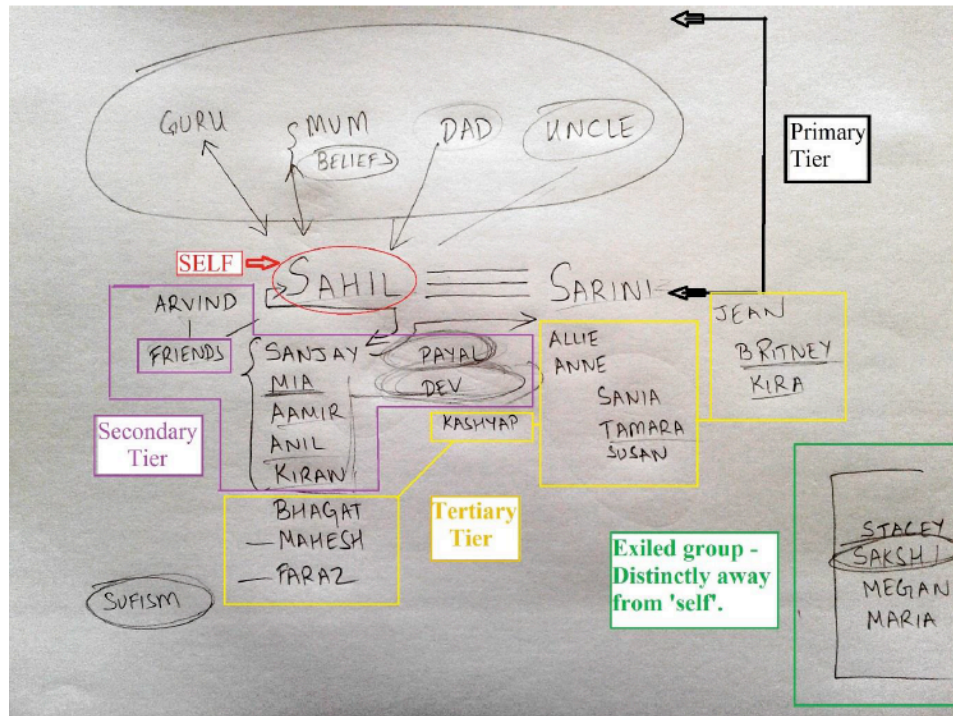 GURU
MUM
BELIEFS
DAD
UNCLE
Primary
Tier
SELF
SAHIL
SARINI
ARVIND
FRIENDS
SANJAY
MIA
AAMIR
ANIL
KIRAN
PAYAL
DEV
KASHYAP
ALLIE
ANNE
SANIA
TAMARA
SUSAN
JEAN
BRITNEY
KIRA
Secondary
Tier
BHAGAT
MAHESH
FARAZ
Tertiary
Tier
SUFISM
Exiled group -
Distinctly away
from 'self'.
STACEY
SAKSHI
MEGAN
MARIA